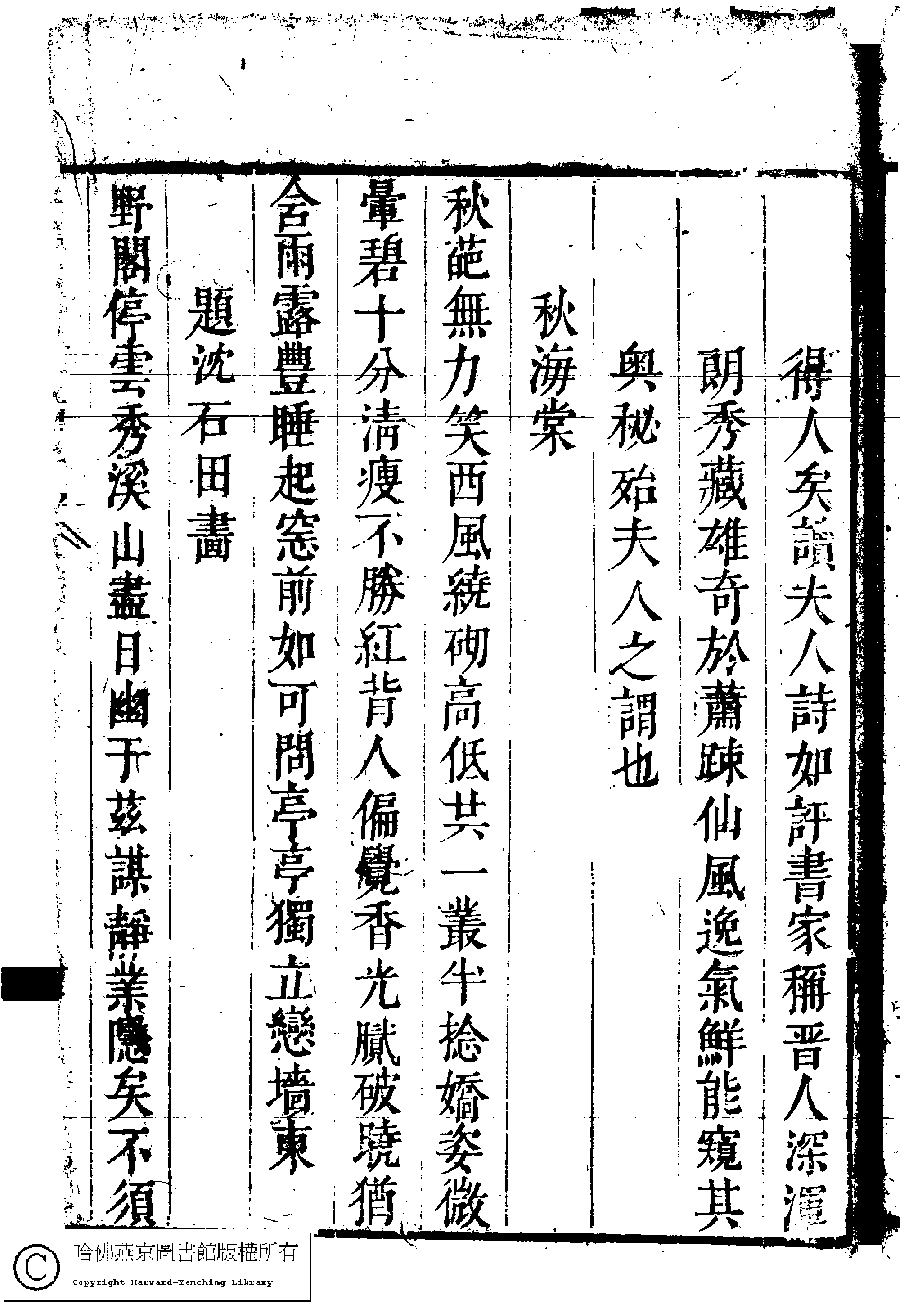 得人矣讀夫人詩如評書家稱晋人深渾
朗秀藏雄奇於蕭踈仙風逸氣鮮能窺其
奥秘殆夫人之謂也
秋海棠
秋葩無力笑西風繞砌高低共一叢半捻嬌姿微
暈碧十分清瘦不勝紅背人偏覺香光膩破曉猶
含雨露豐睡起窓前如可問亭亭獨立戀墻東
題沈石田畵
野閣停雲秀溪山盡日幽于兹謀靜業隱矣不須
哈佛燕京圖書館版權所有
Copyright Harvard-Yenching Library